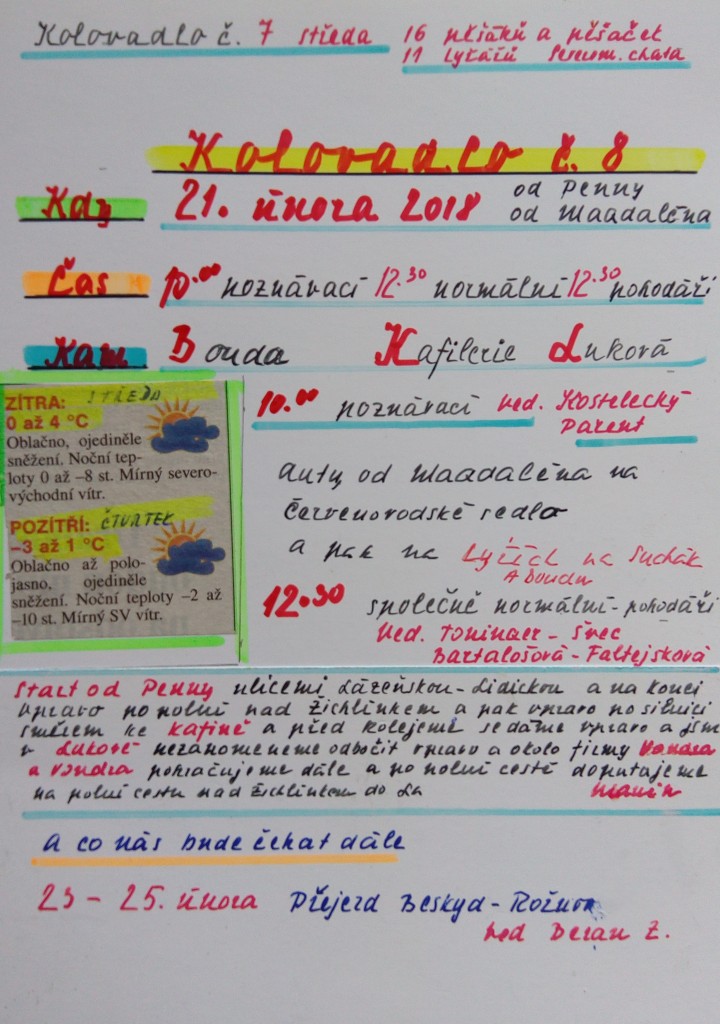 Kolovadlo č. 7 středa 16 pěšáků a pěšaček
11 lyžařů Sererm. chata
Kolovadlo č. 8
Kdy 21. února 2018 od Penny
od Maadalěna
Čas 10.00 poznávací 12.30 normální 12.30 pohodáři
Kam Bouda Kafilerie Luková
ZÍTRA: STŘEDA
0 až 4 °C
Oblačno, ojediněle
sněžení. Noční tep-
loty 0 až –8 st. Mírný severo-
východní vítr.
POZÍTŘÍ: ČTVRTEK
–3 až 1 °C
Oblačno až polo-
jasno, ojediněle
sněžení. Noční teploty –2 až
–10 st. Mírný SV vítr.
10.00 poznávací ved. Kostelecký
Parent
Auty od Maadalěna na
Červenovodské sedlo
a pak na lyžích na Suchák
A Boudu
12.30 společně normální - pohodáři
Ved. Toninaer - Švec
Bartalošová - Faltejsková
Start od Penny ulicemi Lázeňskou - Lidickou a na konci
vpravo po polní nad Žichlínkem a pak vpravo po silnici
směrem ke Kafině a před kolejemi se dáme vpravo a jsme
v Lukové nezapomeneme odbočit vpravo a okolo firmy Vondra
a Vondra pokračujeme dále a po polní cestě doputujeme
na polní cestu nad Žichlínkem do La
A co nás bude čekat dále
23 - 25. února Přejezd Beskyd - Rožnov
Ved Beran Z.